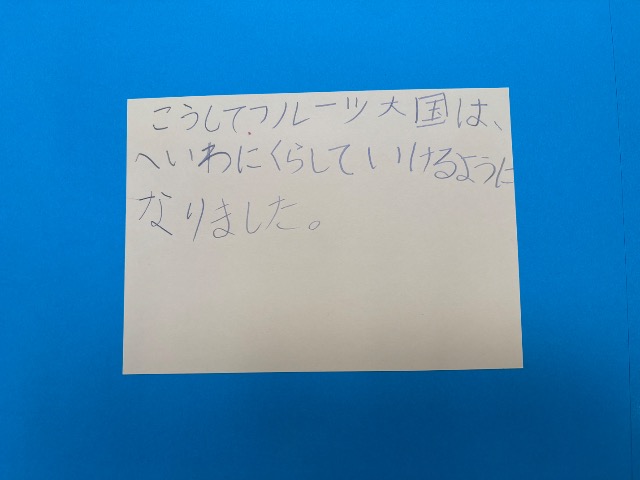 こうしてフルーツ大国は、
へいわにくらしていけるように
なりました。